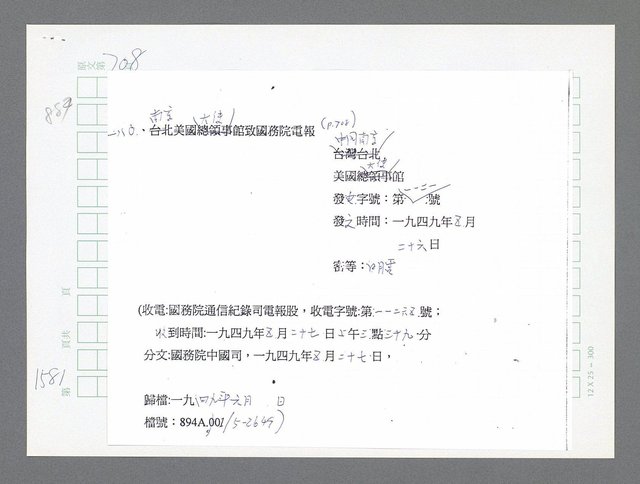 原文第 708
884
南京 大使
二八〇、台北美國總領事館致國務院電報
(p.708)
中國南京
台灣台北
大使
美國總領事館
發文字號：第一一二一號
發文時間：一九四九年5月
二十六日
密等：
(收電:國務院通信紀錄司電報股，收電字號:第一一二六號；
收到時間:一九四九年5月二十七日上午三點三十九分
分文:國務院中國司，一九四九年5月二十七日，
歸檔:一九四九年六月 日
檔號：894A.001/5-2649)
第 1581 頁共 頁
12 X 25 = 300